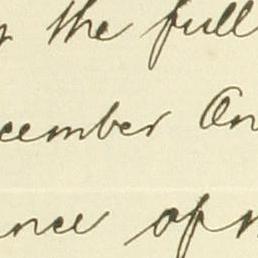 the full
cember On
nce of